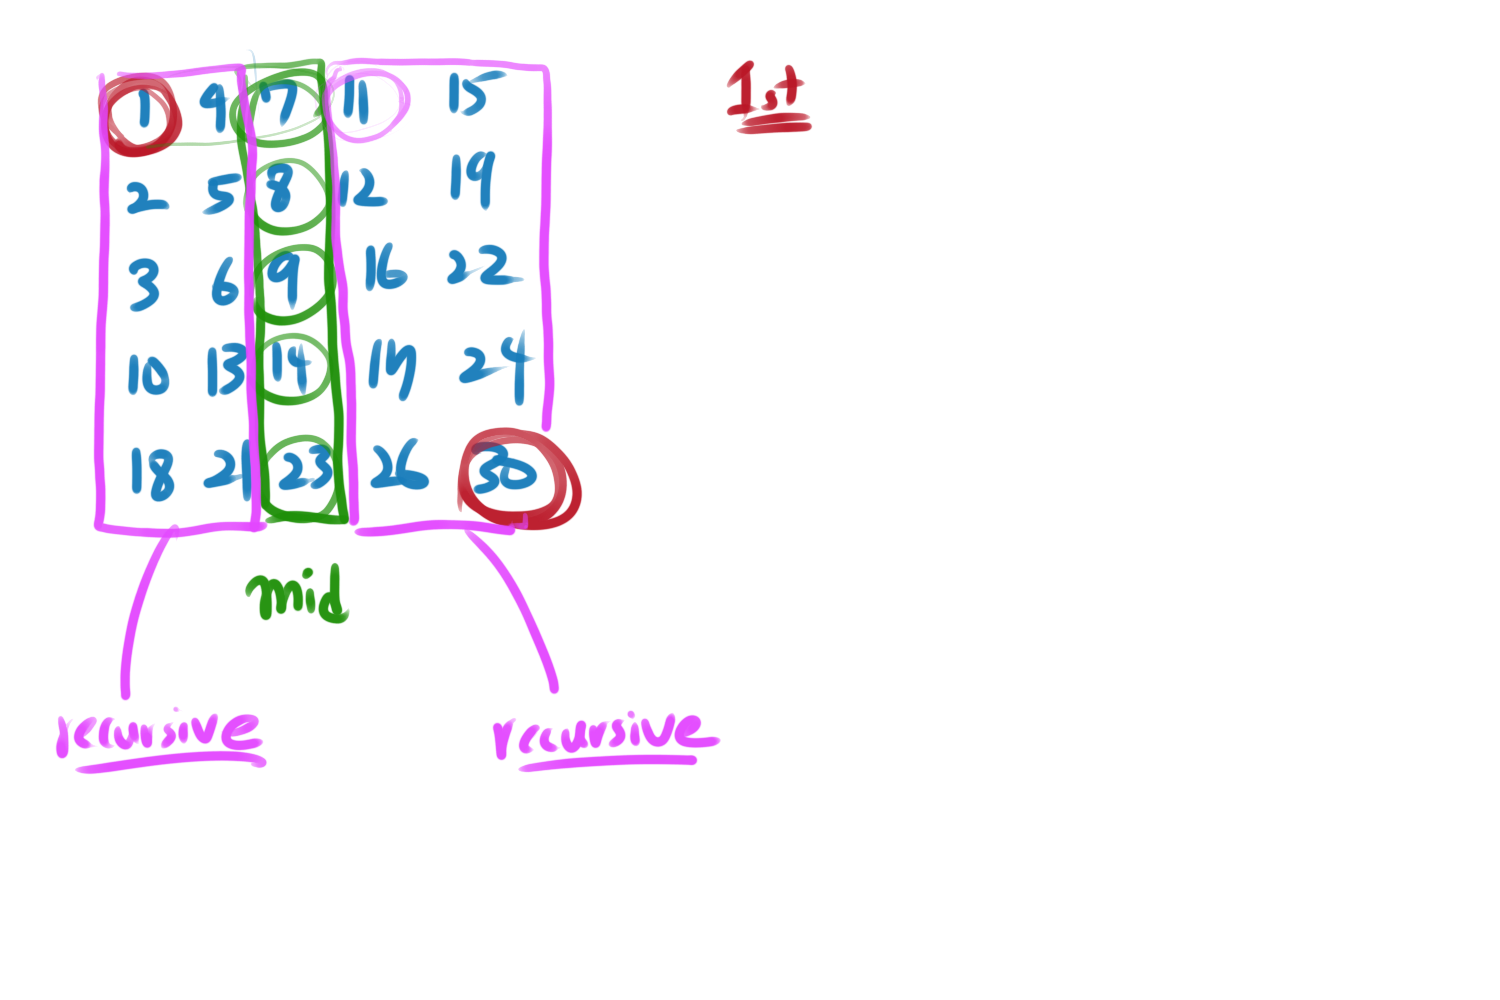 1 4 7 11 15
1st
2 5 8 12 19
3 6 9 16 22
10 13 14 17 24
18 21 23 26 30
mid
recursive
recursive